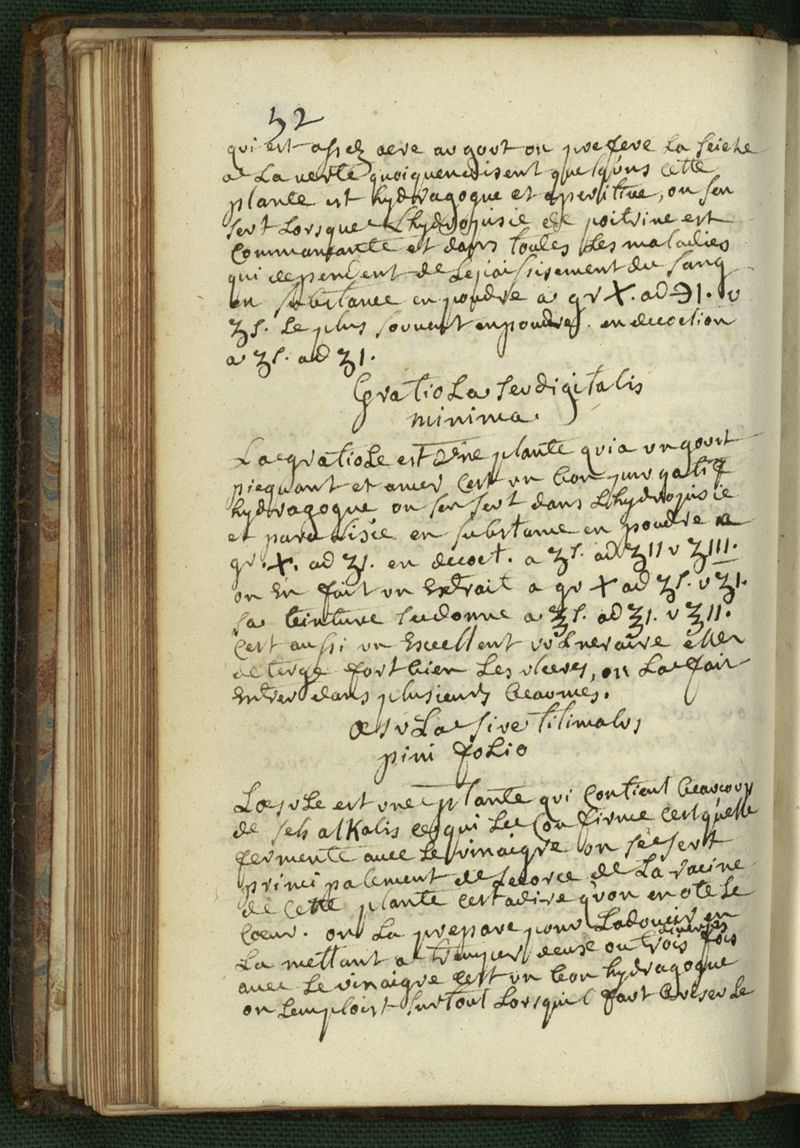 52
qui est assez acre au gout on prefere la seiche
a la verte quoiquendisent quelquns cette
plante est hydragogue et aperitive, on sen
sert Lorsque Lhydropisie de poitrine est
commancante et dans toutes les maladies
qui dependent de Lepaississement du sang
en substance en poudre a gr X. ad ℈1. v
ʒs. le plus souvent en poudre. en decoction
a ʒs. ad ʒ1.
Gratiola seu digitalis
minima.
La gratiole est une plante qui a un gout
picquant et amer cest un bon purgatif
hydragogue on sen sert dans Lhydropisie
et paralisie en substance en poudre a
gr. X. ad ʒs. en decoct. a ʒs. ad ʒ11 v ʒ111.
on en fait un Extrait a gr X ad ʒs. v ʒ1.
sa teinture se donne a ʒs. ad ʒ1. v ʒ11.
Cest aussi un Excellent vulneraire elle
deterge fort bien Les ulceres, on La fait
Entrer dans plusieurs beaumes.
œsula sive titimalus
pini folio
Lœsule est une plante qui contient beaucoup
de sels alkalis ce qui le confirme cest quelle
fermente avec le vinaigre on se sert
principalement de Lecorce de La racine
de cette plante cest adire quon en ote le
Cœur. on La prepare pour Ladoucir en
La mettant a tremper deux ou trois diverses fois
avec Le vinaigre cest un bon hydragogue
on Lemploist surtout Lorsquil faut évaser le